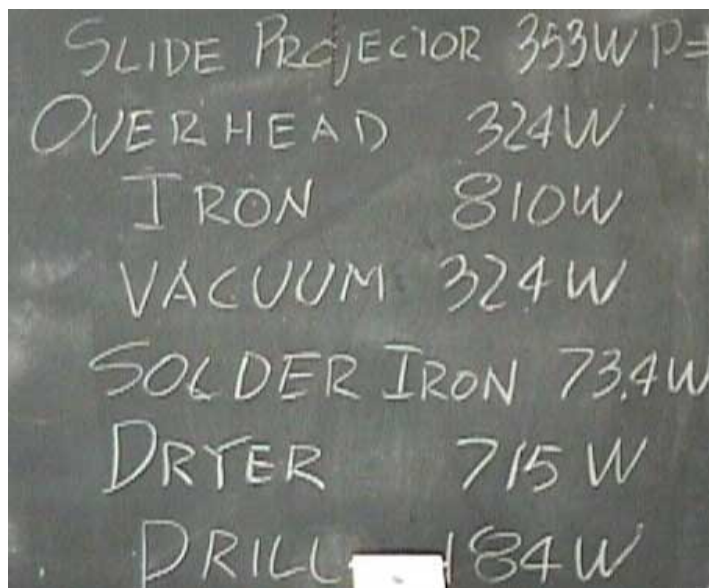 SLIDE PROJECTOR 353W P=
OVERHEAD 324W
IRON 810W
VACUUM 324W
SOLDER IRON 73.4W
DRYER 715W
DRILL 184W